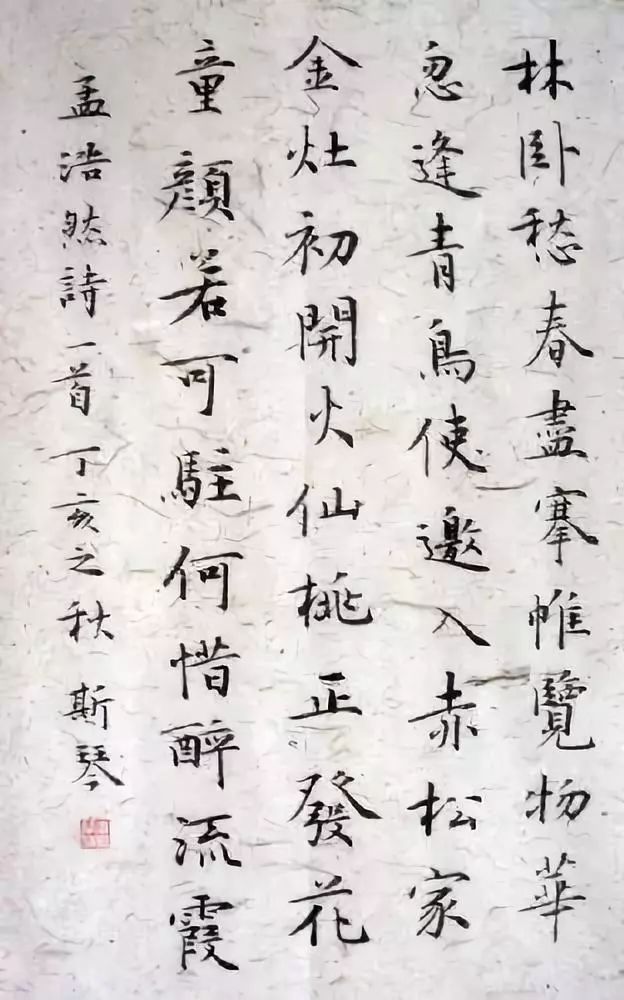 林卧愁春盡搴帷覽物華
忽逢青鳥使邀入赤松家
金灶初開火仙桃正發花
童顔若可駐何惜醉流霞
孟浩然詩一首丁亥之秋斯琴